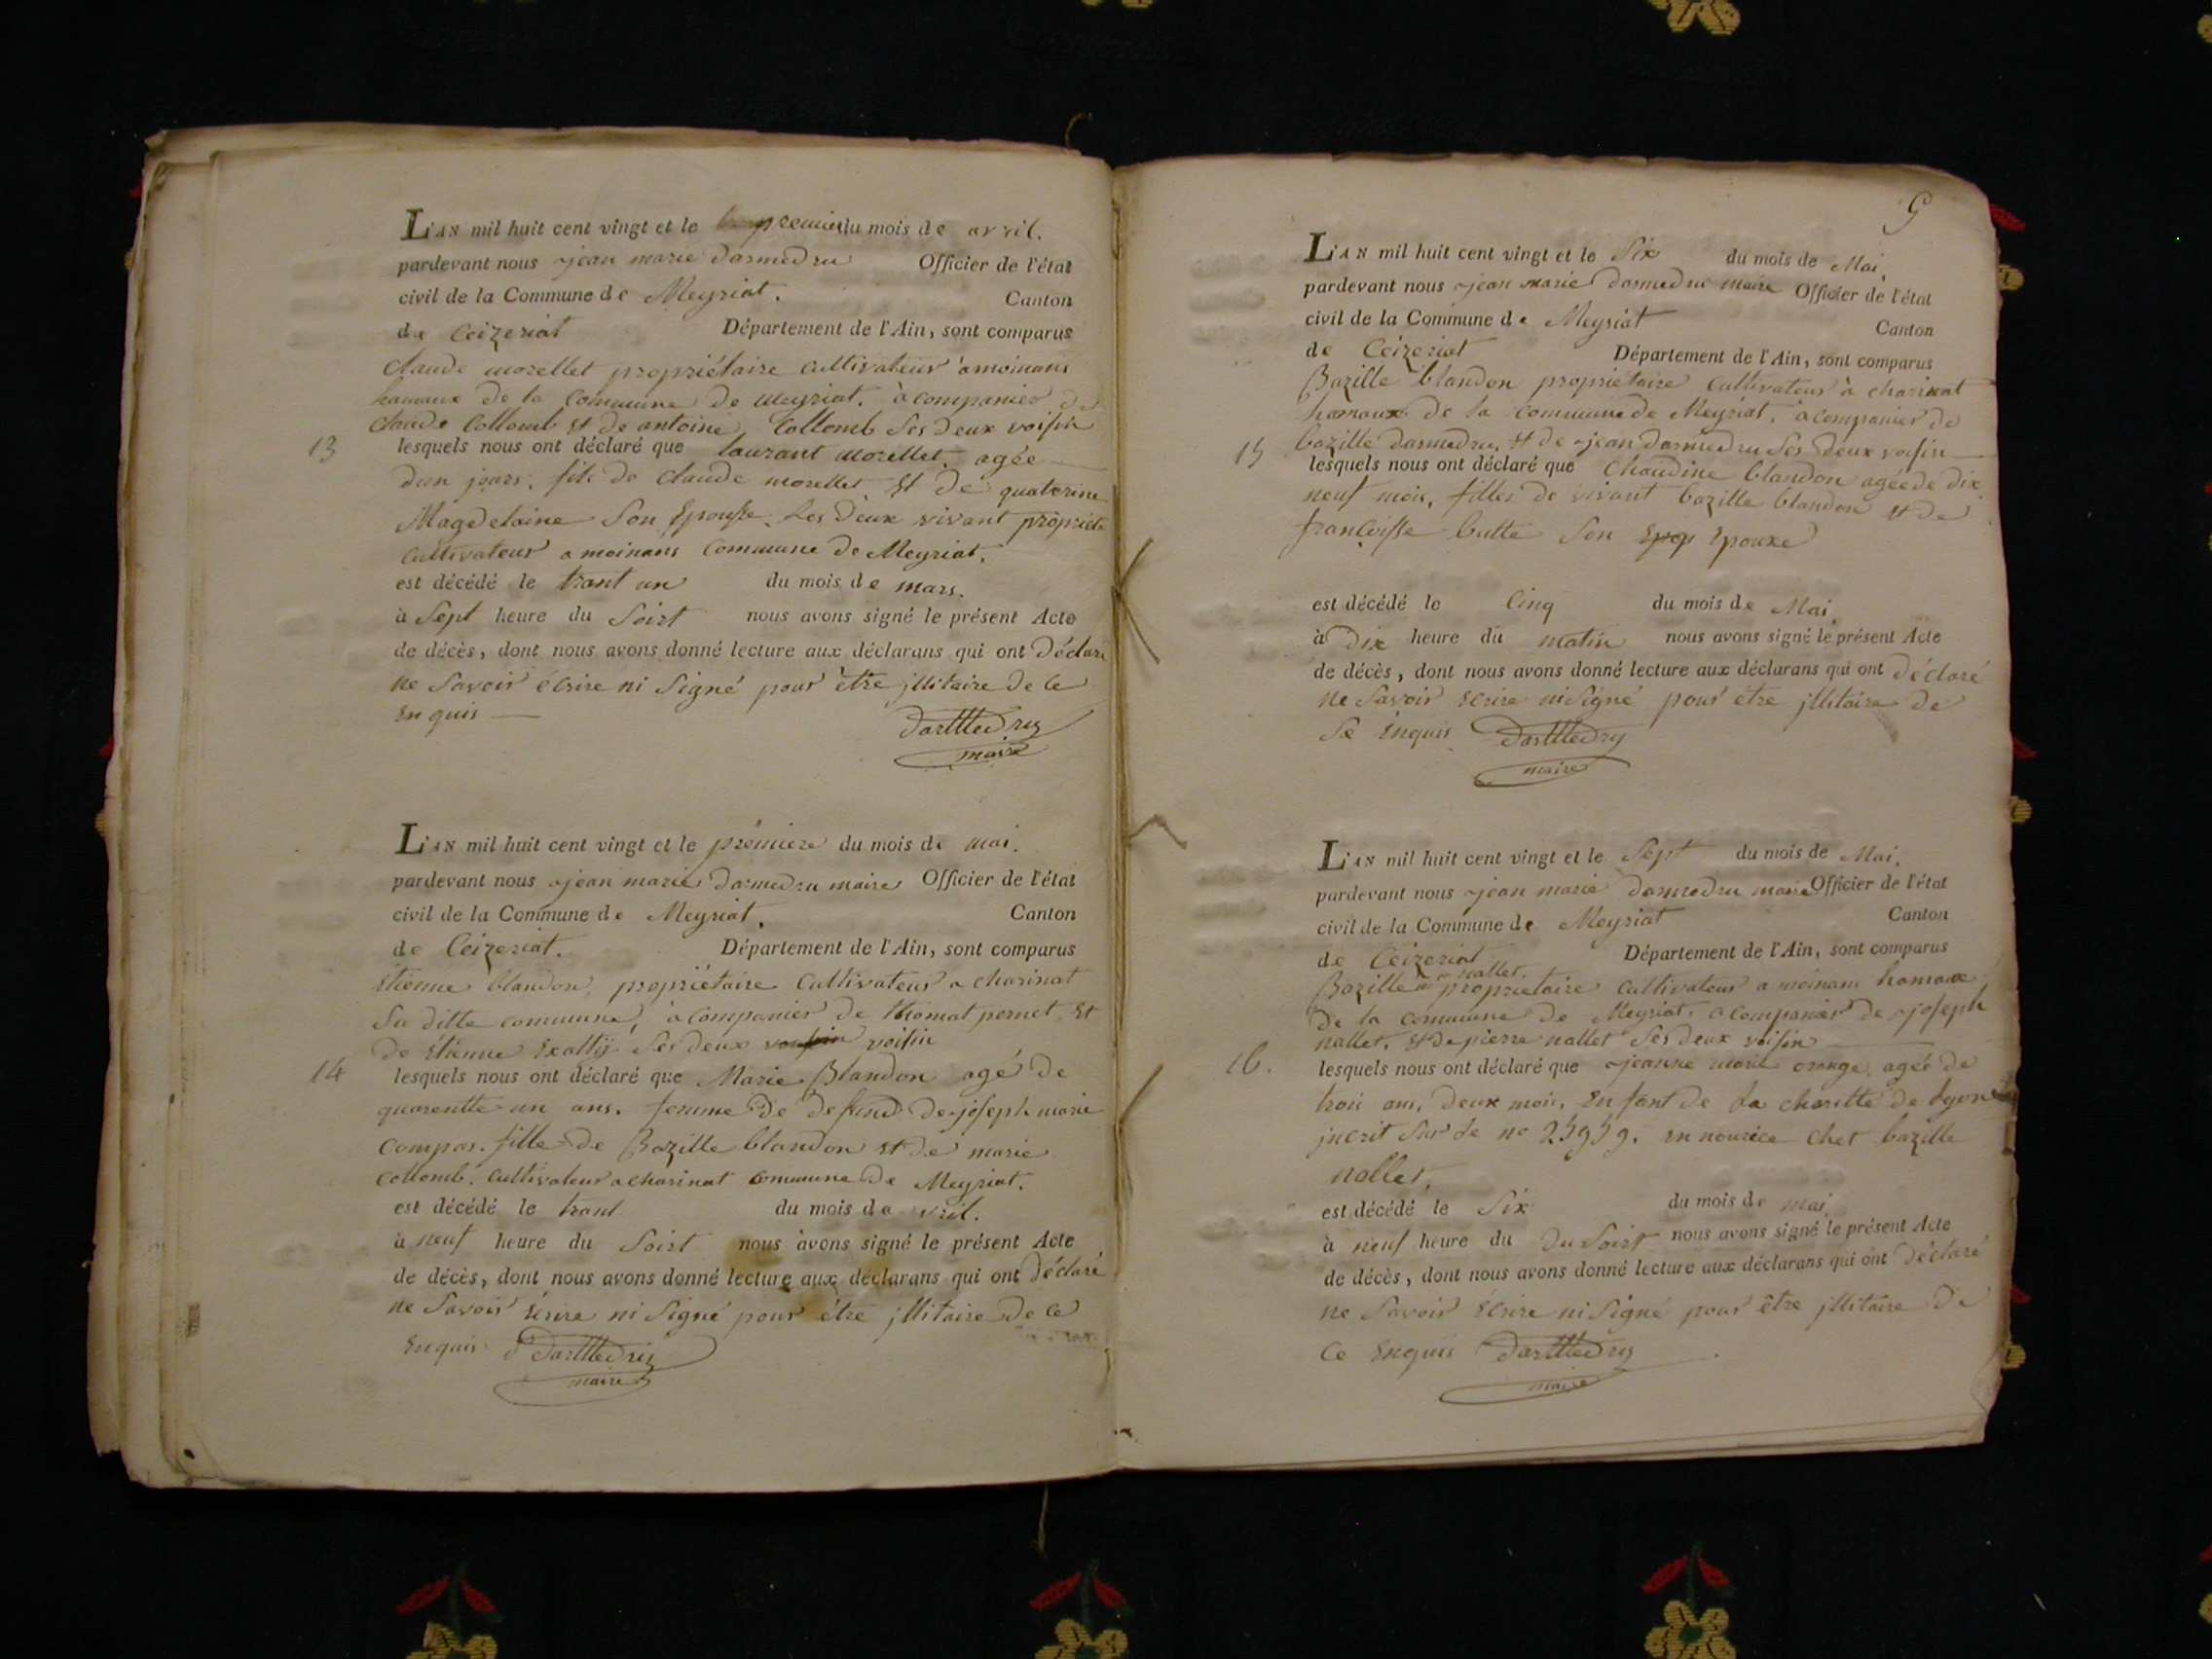 L'AN mil huit cent vingt et le premier du mois de avril.
pardevant nous jean marie darmedru Officier de l'état
civil de la Commune de Meyriat. Canton
de Ceizeriat Département de l'Ain, sont comparus
claude morellet propriétaire cultivateur a moinans
hamaux de la commune de meyriat. àcompanier de
claude Collomb et de antoine Collomb Ses deux voisin
13 lesquels nous ont déclaré que laurant morellet. agée
dun jours. fils de claude morellet et de quaterine
Magdelaine Son Epousse. Les deux vivant propriete
cultivateur a moinans commune de Meyriat.
est décédé le trant un du mois de mars.
à Sept heure du Soirt nous avons signé le présent Acte
de décès, dont nous avons donné lecture aux déclarans qui ont déclaré
ne Savoir écrire ni Signé pour être jllitaire de ce
Enquis
DarMedru
maire
L'AN mil huit cent vingt et le prémiere du mois de mai.
pardevant nous jean marie darmedru maire Officier de l'état
civil de la Commune de Meyriat. Canton
de Ceizeriat. Département de l'Ain, sont comparus
Etienne blandon, propriétaire Cultivateur a charinat
Su ditte commune, àcompanier de thomat pernet Et
de Etienne Ses deux voisin
14 lesquels nous ont déclaré que Marie Blandon agé de
quarentte un ans. femme de defund de joseph marie
compas. fille de Bazille blandon et de marie
collomb. cultivateur a charinat commune de Meyriat.
est décédé le trant du mois de vril.
à neuf heure du Soirt nous avons signé le présent Acte
de décès, dont nous avons donné lecture aux déclarans qui ont déclaré
ne Savoir Ecrire ni Signé pour être jllitaire de ce
Enquis DarMedru
maire
9
L'AN mil huit cent vingt et le Six du mois de Mai.
pardevant nous jean marie darmedru maire Officier de l'état
civil de la Commune de Meyriat Canton
de Ceizeriat Département de l'Ain, sont comparus
Bazille blandon propriétaire cultivateur à charinat
hamaux de la commune de Meyriat. àcompanier de
bazille darmedru. et de jean darmedru Ses deux voisin
15 lesquels nous ont déclaré que Chaudine blandon agée de dix
neuf mois, filles de vivant bazille blandon et de
françoisse butte Son Epop Epouxe
est décédé le Cinq du mois de Mai
à Dix heure du matin nous avons signé le présent Acte
de décès, dont nous avons donné lecture aux déclarans qui ont déclaré
ne Savoir Ecrire ni Signé pour être jllitaire de
Se Enquis DarMedru
maire
L'AN mil huit cent vingt et le Sept du mois de Mai.
pardevant nous jean marie darmedru maire Officier de l'état
civil de la Commune de Meyriat Canton
de Ceizeriat Département de l'Ain, sont comparus
nallet.
Bazille propriétaire cultivateur a moinans hamaux
de la commune de Meyriat. acompanier de joseph
nallet. et de pierre nallet Ses deux voisin
16. lesquels nous ont déclaré que jeanne marie orange agée de
trois ans, deux mois, Enfant de la charitté de lyon
jncrit Sur Le no 25959. en nourice chet bazille
nallet,
est décédé le Six du mois de mai
à neuf heure du du Soirt nous avons signé le présent Acte
de décès, dont nous avons donné lecture aux déclarans qui ont déclaré
ne Savoir Ecrire ni Signé pour être jllitaire de
Ce Enquis DarMedru
maire